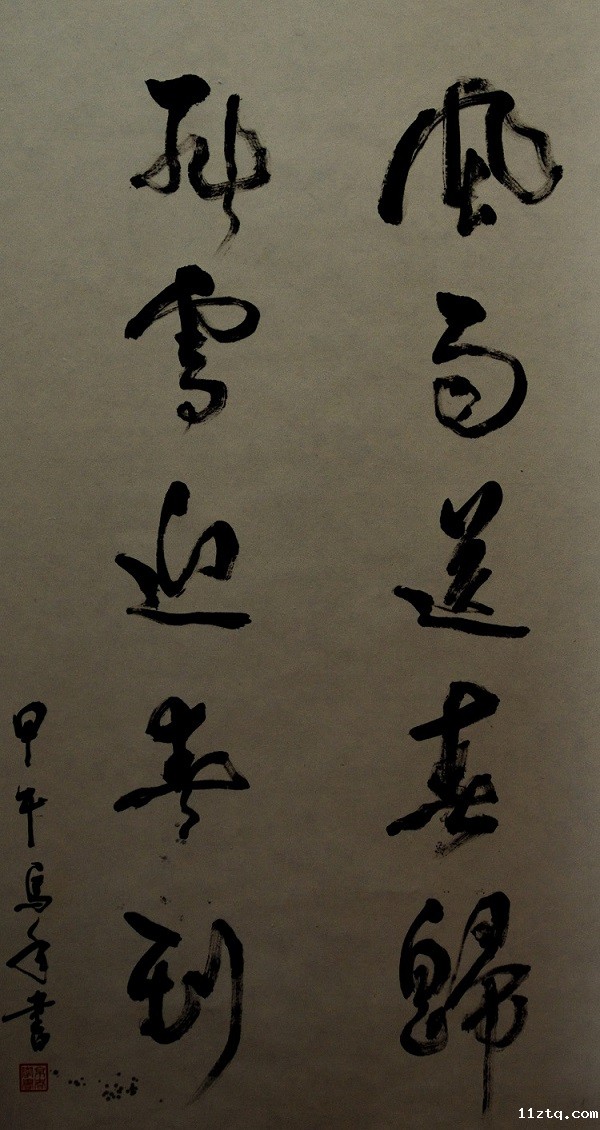 風雨送春歸
飛雪迎春到
甲午馬年書
11ztq.com